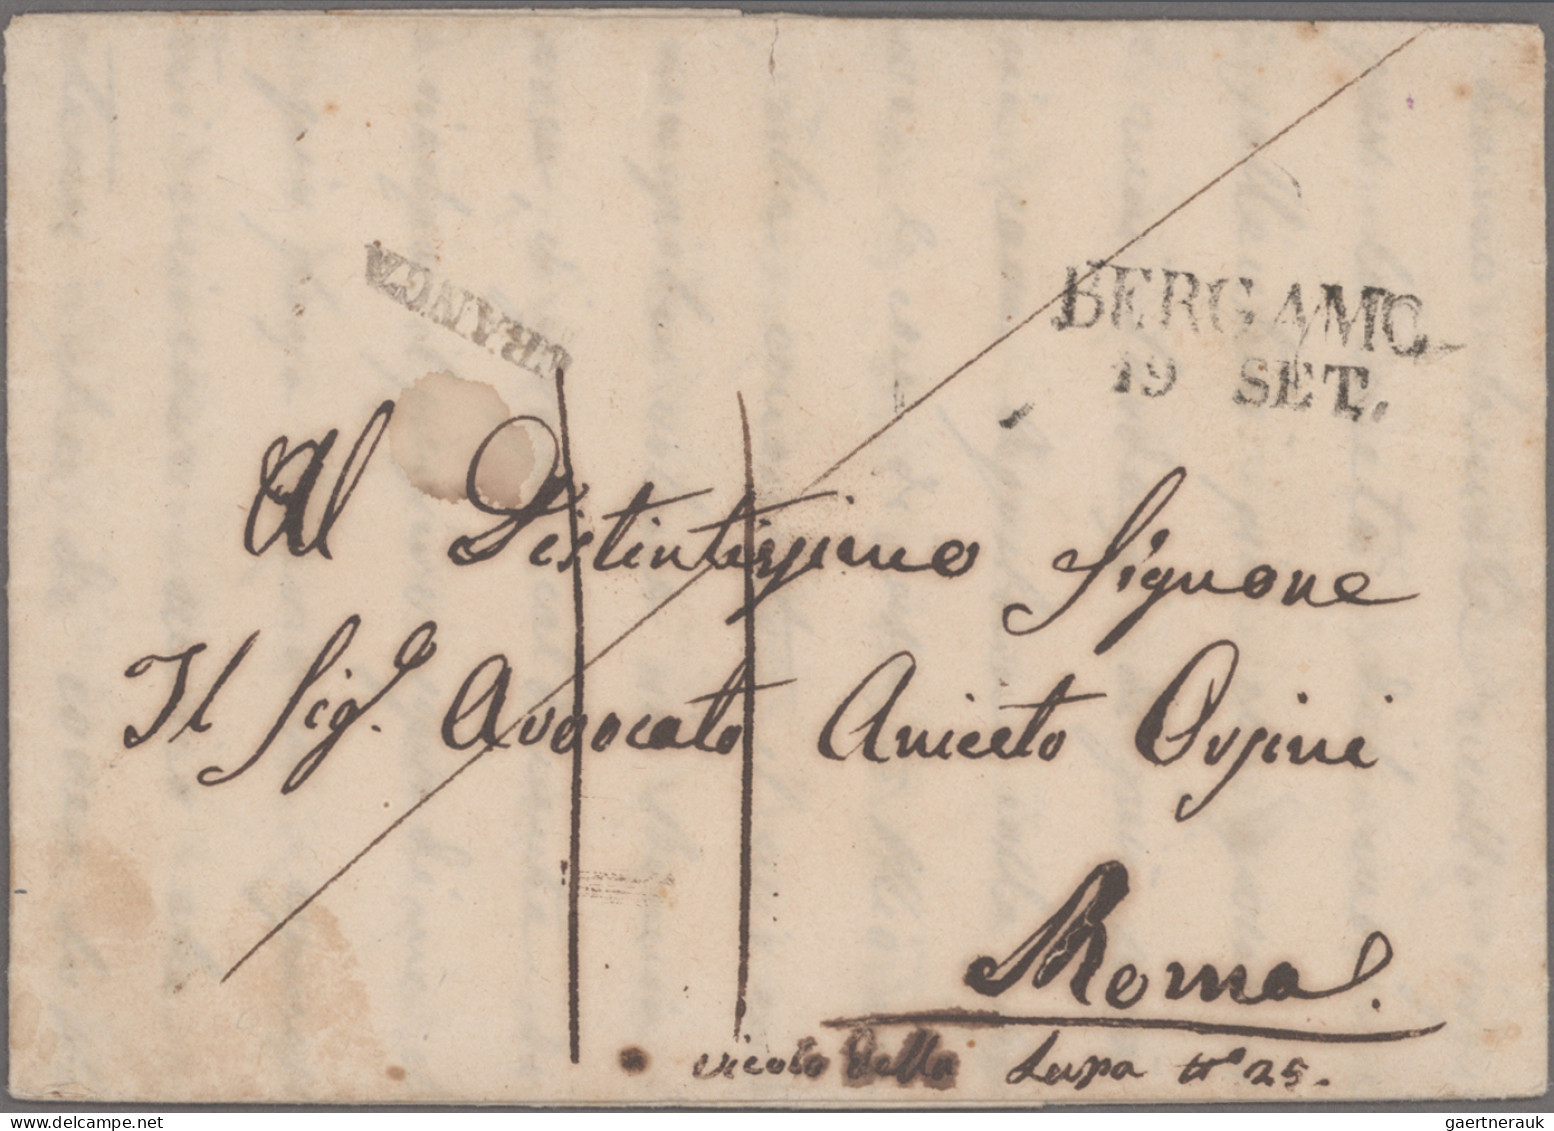 FRANCA
BERGAMO
19 SET.
Al Distintissimo Signore
Il Sig.e Avvocato Aniceto Orsini
Roma.
vicolo della Lupa No 25.
gaertnerauk